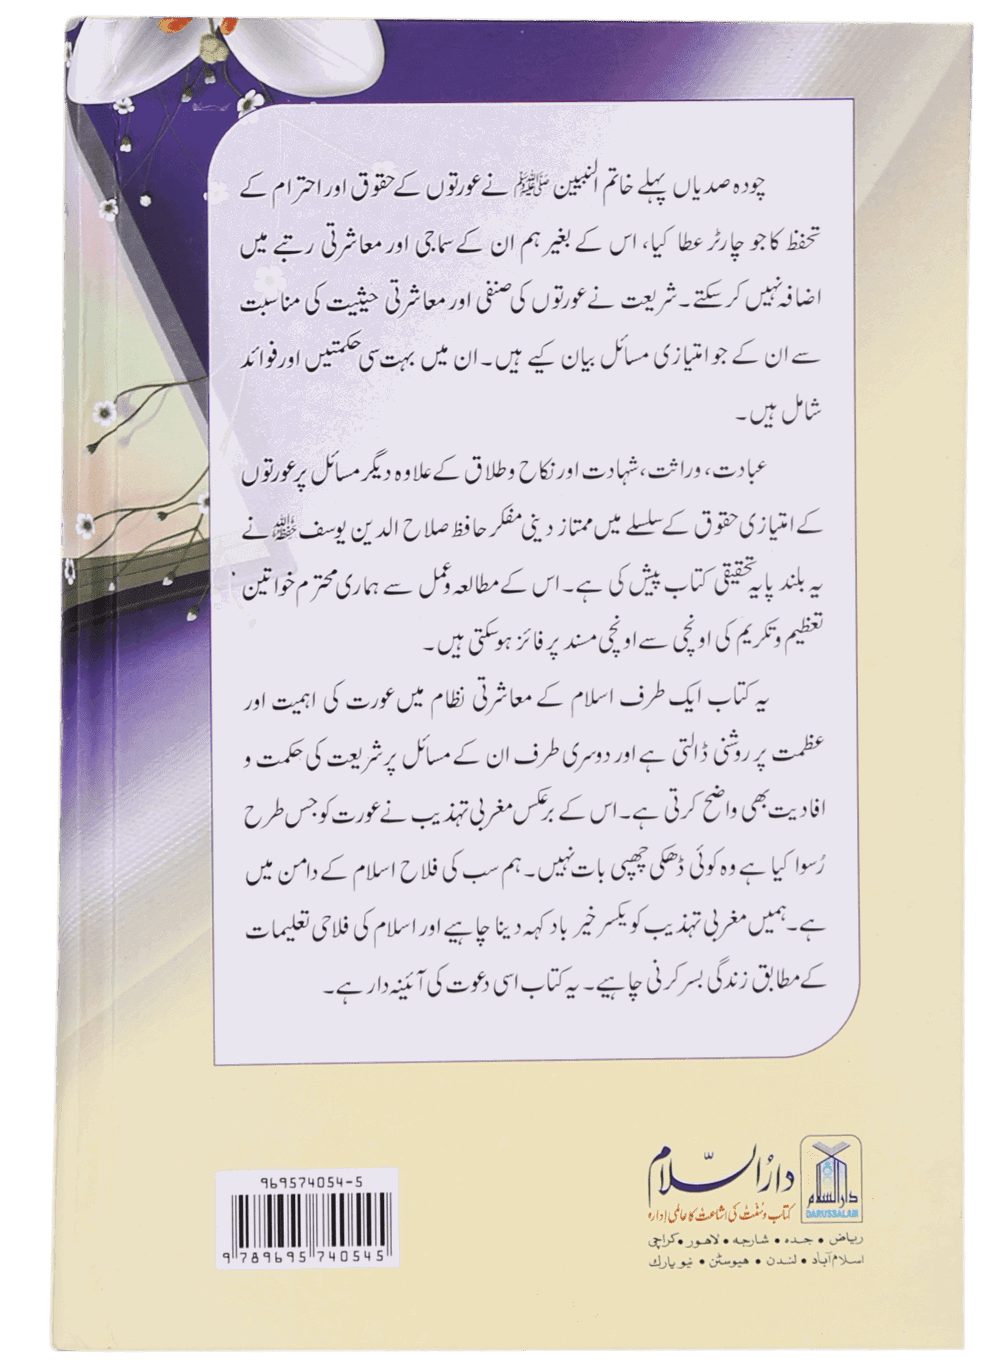 چودہ صدیاں پہلے خاتم النبیین ﷺ نے عورتوں کے حقوق اور احترام کے
تحفظ کا جو چارٹر عطا کیا، اس کے بغیر ہم ان کے سماجی اور معاشرتی رتبے میں
اضافہ نہیں کر سکتے۔ شریعت نے عورتوں کی صنفی اور معاشرتی حیثیت کی مناسبت
سے ان کے جو امتیازی مسائل بیان کیے ہیں۔ ان میں بہت سی حکمتیں اور فوائد
شامل ہیں۔
عبادت، وراثت، شہادت اور نکاح و طلاق کے علاوہ دیگر مسائل پر عورتوں
کے امتیازی حقوق کے سلسلے میں ممتاز دینی مفکر حافظ صلاح الدین یوسف حفظہ اللہ نے
یہ بلند پایہ تحقیقی کتاب پیش کی ہے۔ اس کے مطالعہ و عمل سے ہماری محترم خواتین
تعظیم و تکریم کی اونچی سے اونچی مسند پر فائز ہو سکتی ہیں۔
یہ کتاب ایک طرف اسلام کے معاشرتی نظام میں عورت کی اہمیت اور
عظمت پر روشنی ڈالتی ہے اور دوسری طرف ان کے مسائل پر شریعت کی حکمت و
افادیت بھی واضح کرتی ہے۔ اس کے برعکس مغربی تہذیب نے عورت کو جس طرح
رُسوا کیا ہے وہ کوئی ڈھکی چھپی بات نہیں۔ ہم سب کی فلاح اسلام کے دامن میں
ہے۔ ہمیں مغربی تہذیب کو یکسر خیر باد کہہ دینا چاہیے اور اسلام کی فلاحی تعلیمات
کے مطابق زندگی بسر کرنی چاہیے۔ یہ کتاب اسی دعوت کی آئینہ دار ہے۔
دارالسلام
DARUSSALAM
دارُالسّلام
کتاب و سنت کی اشاعت کا عالمی ادارہ
ریاض • جدہ • شارجہ • لاہور • کراچی
اسلام آباد • لندن • ہیوسٹن • نیو یارک
969574054-5
9 789695 740545